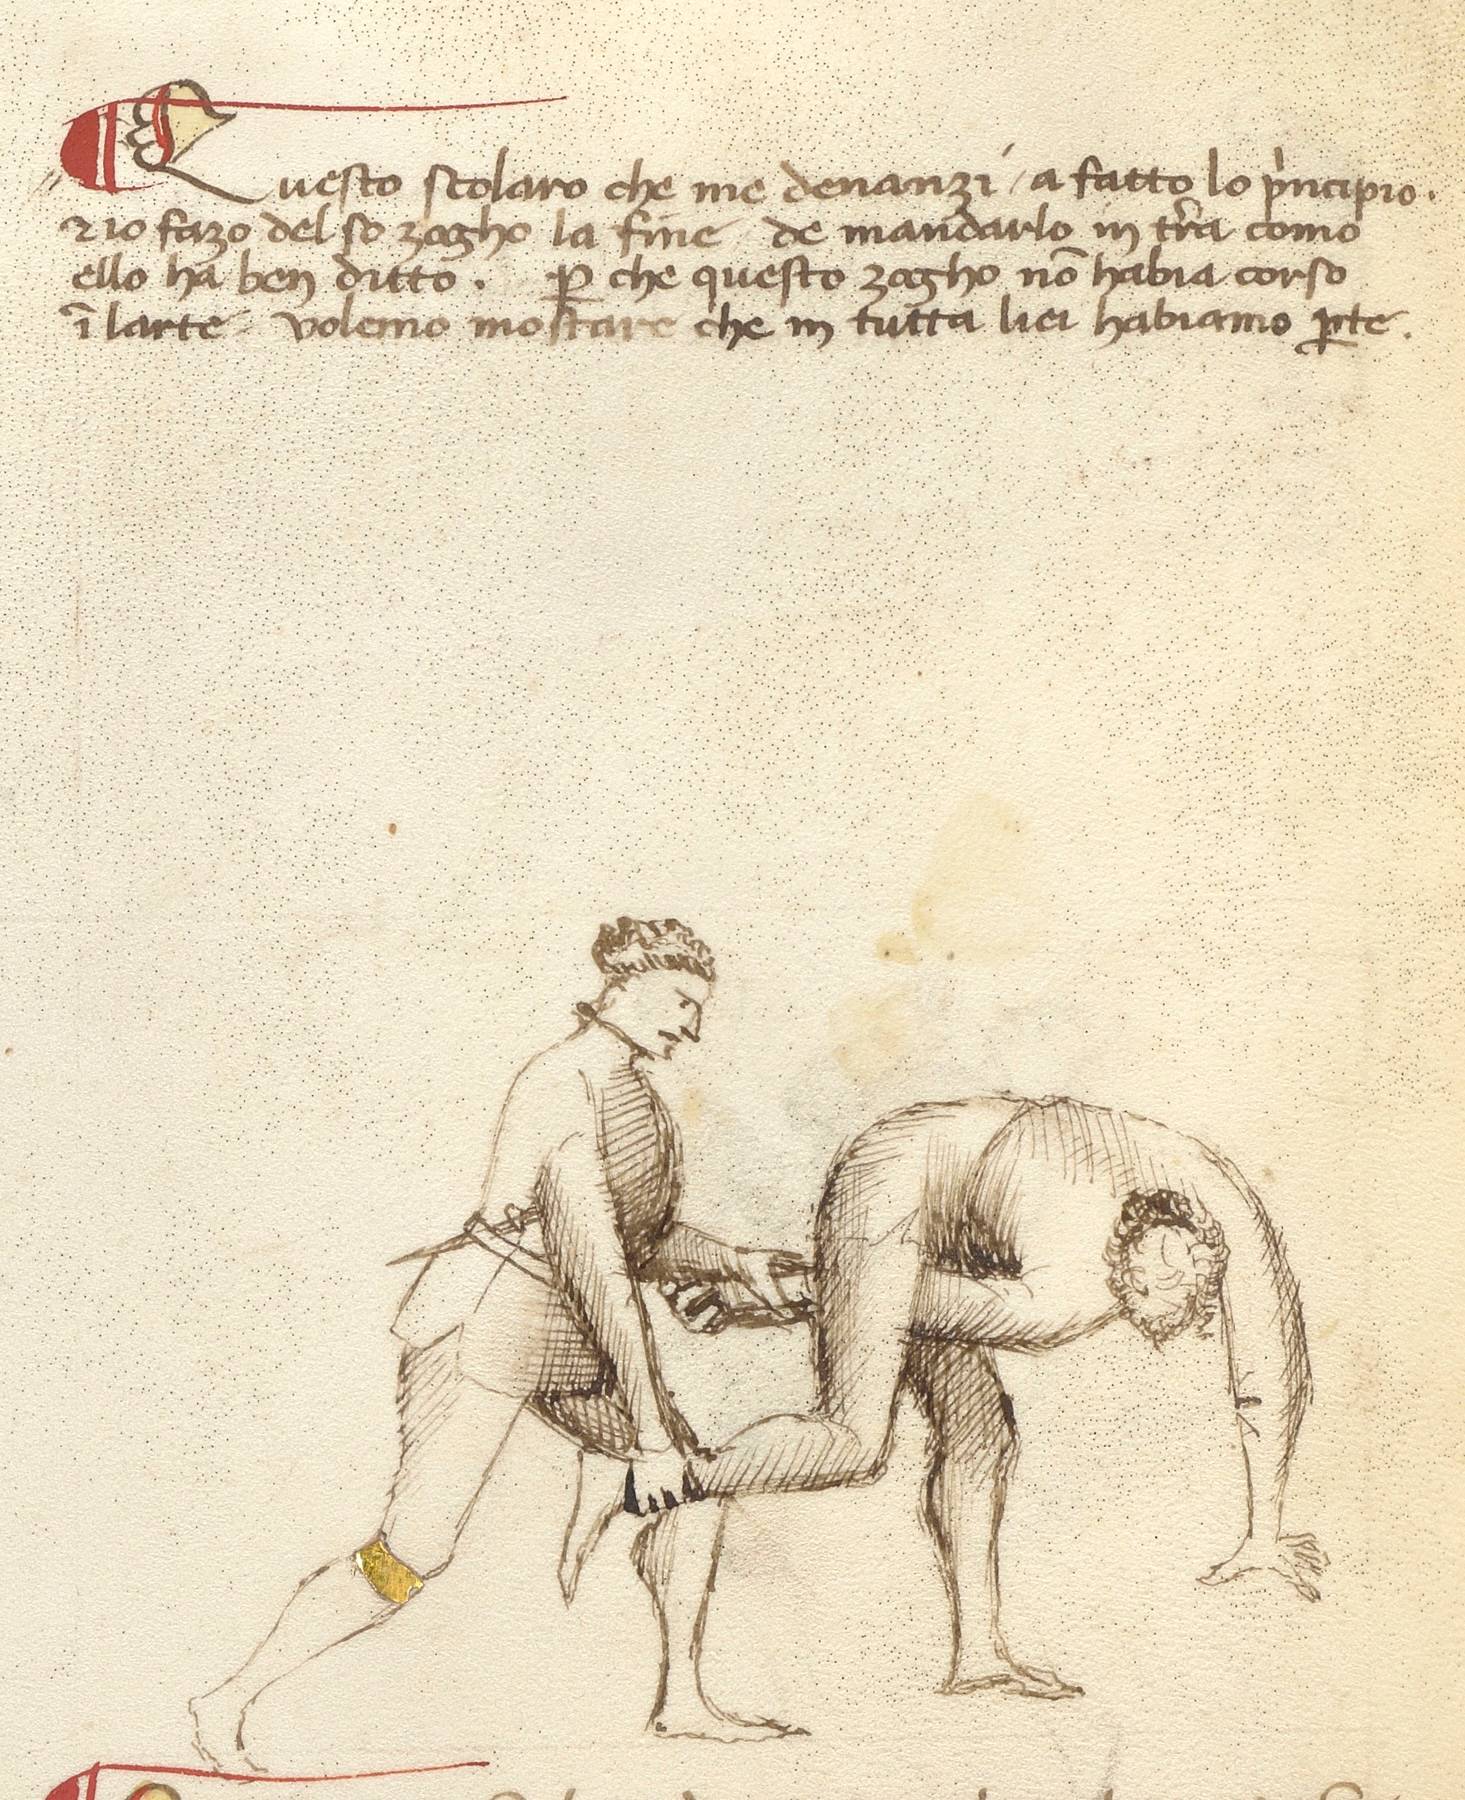 Questo scolaro che me denanzi / a fatto lo p̀ncipio.
Et io fazo del so zogho la fine / de mandarlo in tr̃a como
ello ha ben ditto. ꝑ che questo zogho nō habia corso
ī larte / volemo mostrare che in tutta liei habiamo ꝑte.